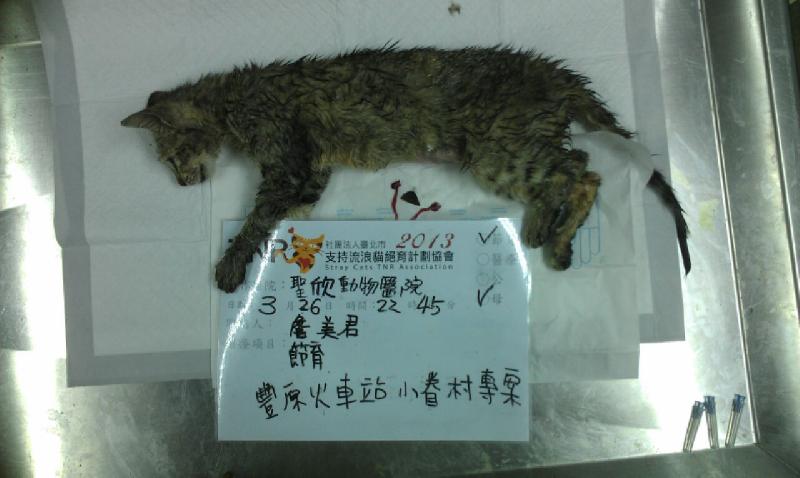 TNR 社團法人臺北市 2013
支持流浪貓絕育計劃協會
Stray Cats TNR Association
院：聖欣動物醫院
日期 3月26日 時間：22時45分
人：詹美君
醫療項目：節育
豐原火車站小眷村專案
✓節
醫療
公
✓母